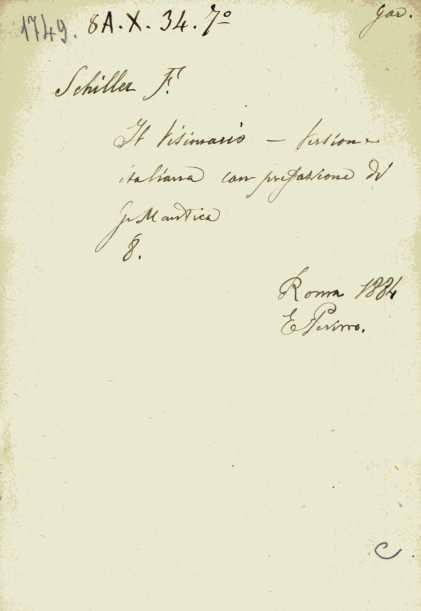 1749. 8A.X.34.7º
gav.
Schiller F.
Il Visionario – Versione
italiana con prefazione di
G. Mantica
8.
Roma 1884
E. Perino.
C.